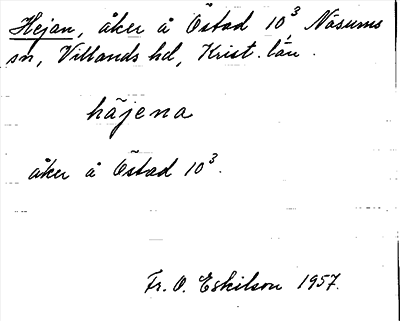 Hejan, åker å Östad 10³ Näsums
sn, Villands hd, Krist. län.
häjena
åker å Östad 10³.
Fr. O. Eskilson 1957.